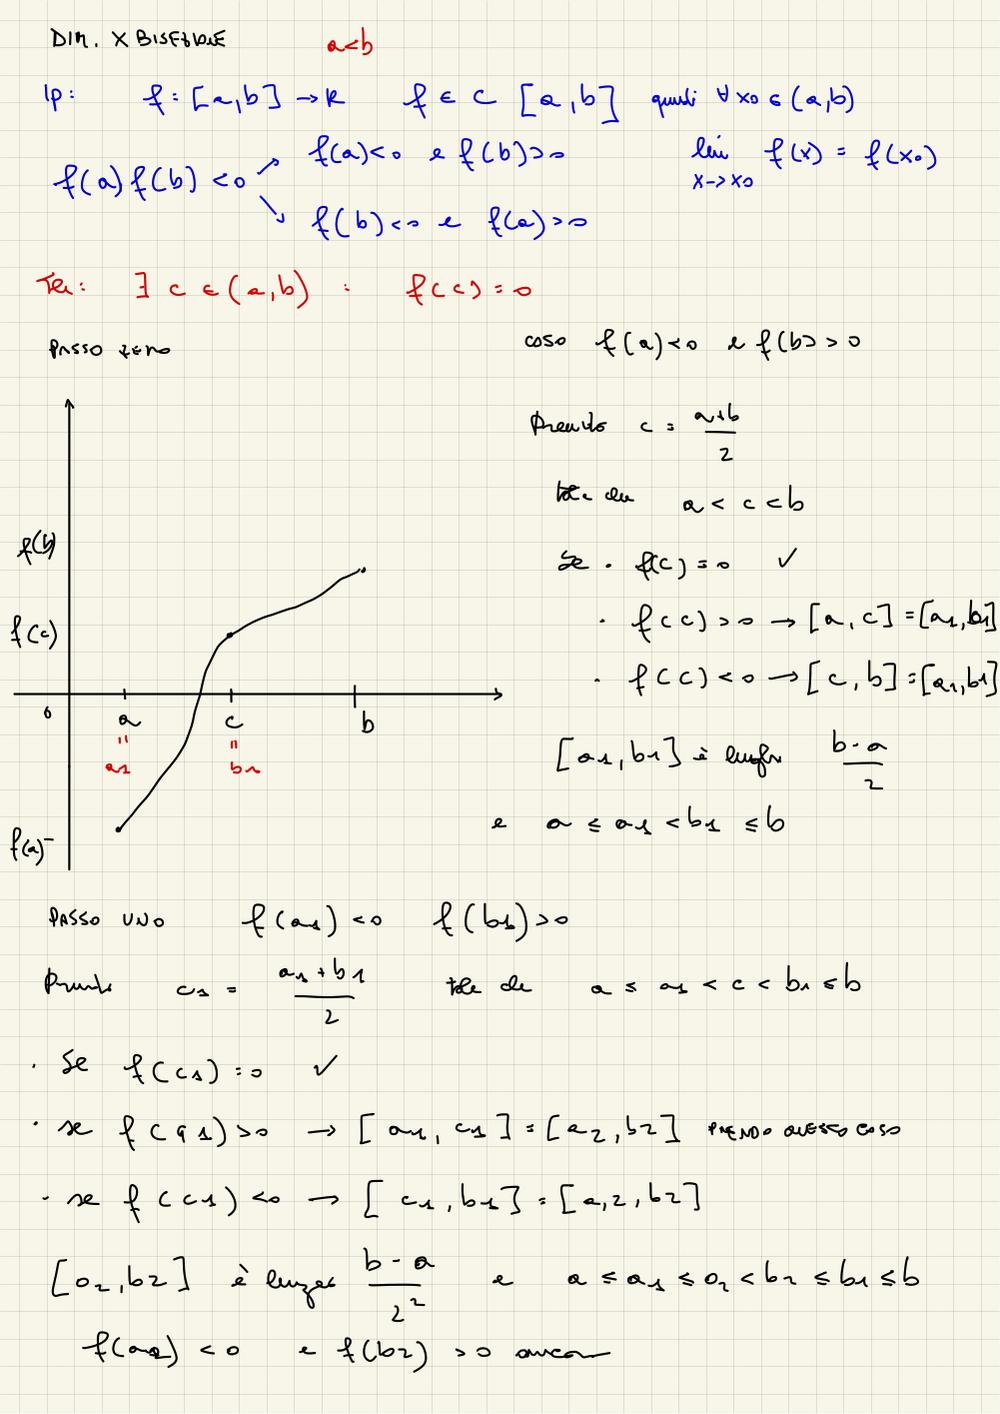 DIM. X BISEZIONE a<b
Ip: f: [a,b] → R f ∈ C [a,b] quindi ∀ x0 ∈ (a,b)
f(a) f(b) <0 ↗ f(a)<0 e f(b)>0 lim f(x) = f(x0)
x→x0
↘ f(b)<0 e f(a)>0
Tesi: ∃ c ∈ (a,b) : f(c) = 0
PASSO ZERO caso f(a)<0 e f(b)>0
Prendo c = a+b
2
tale che a < c < b
f(b)
Se · f(c) = 0 ✓
f(c)
· f(c) >0 → [a,c] = [a1,b1]
· f(c) <0 → [c,b] = [a1,b1]
0 a c b
" "
a1 b1
[a1,b1] è lungo b-a
2
e a ≤ a1 < b1 ≤ b
f(a)
PASSO UNO f(a1) <0 f(b1) >0
Prendo c1 = a1+b1 tale che a ≤ a1 < c < b1 ≤ b
2
· Se f(c1) = 0 ✓
· se f(c1) >0 → [a1, c1] = [a2,b2] PRENDO QUESTO CASO
· se f(c1) <0 → [c1,b1] = [a,2,b2]
[a2,b2] è lungo b-a e a ≤ a1 ≤ a2 < b2 ≤ b1 ≤ b
2²
f(a2) <0 e f(b2) >0 ancora